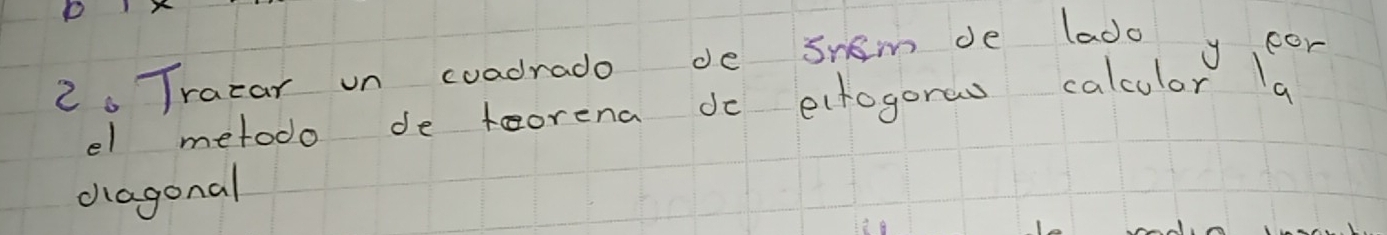 b x
2. Trazar un cuadrado de de lado y por
el metodo de teorena de pitogoras calcular la
diagonal